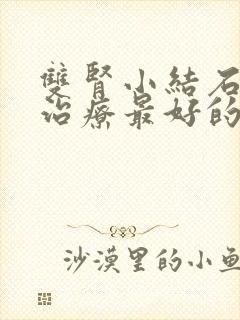 雙腎小結石
治療最好的
沙漠里的小鱼